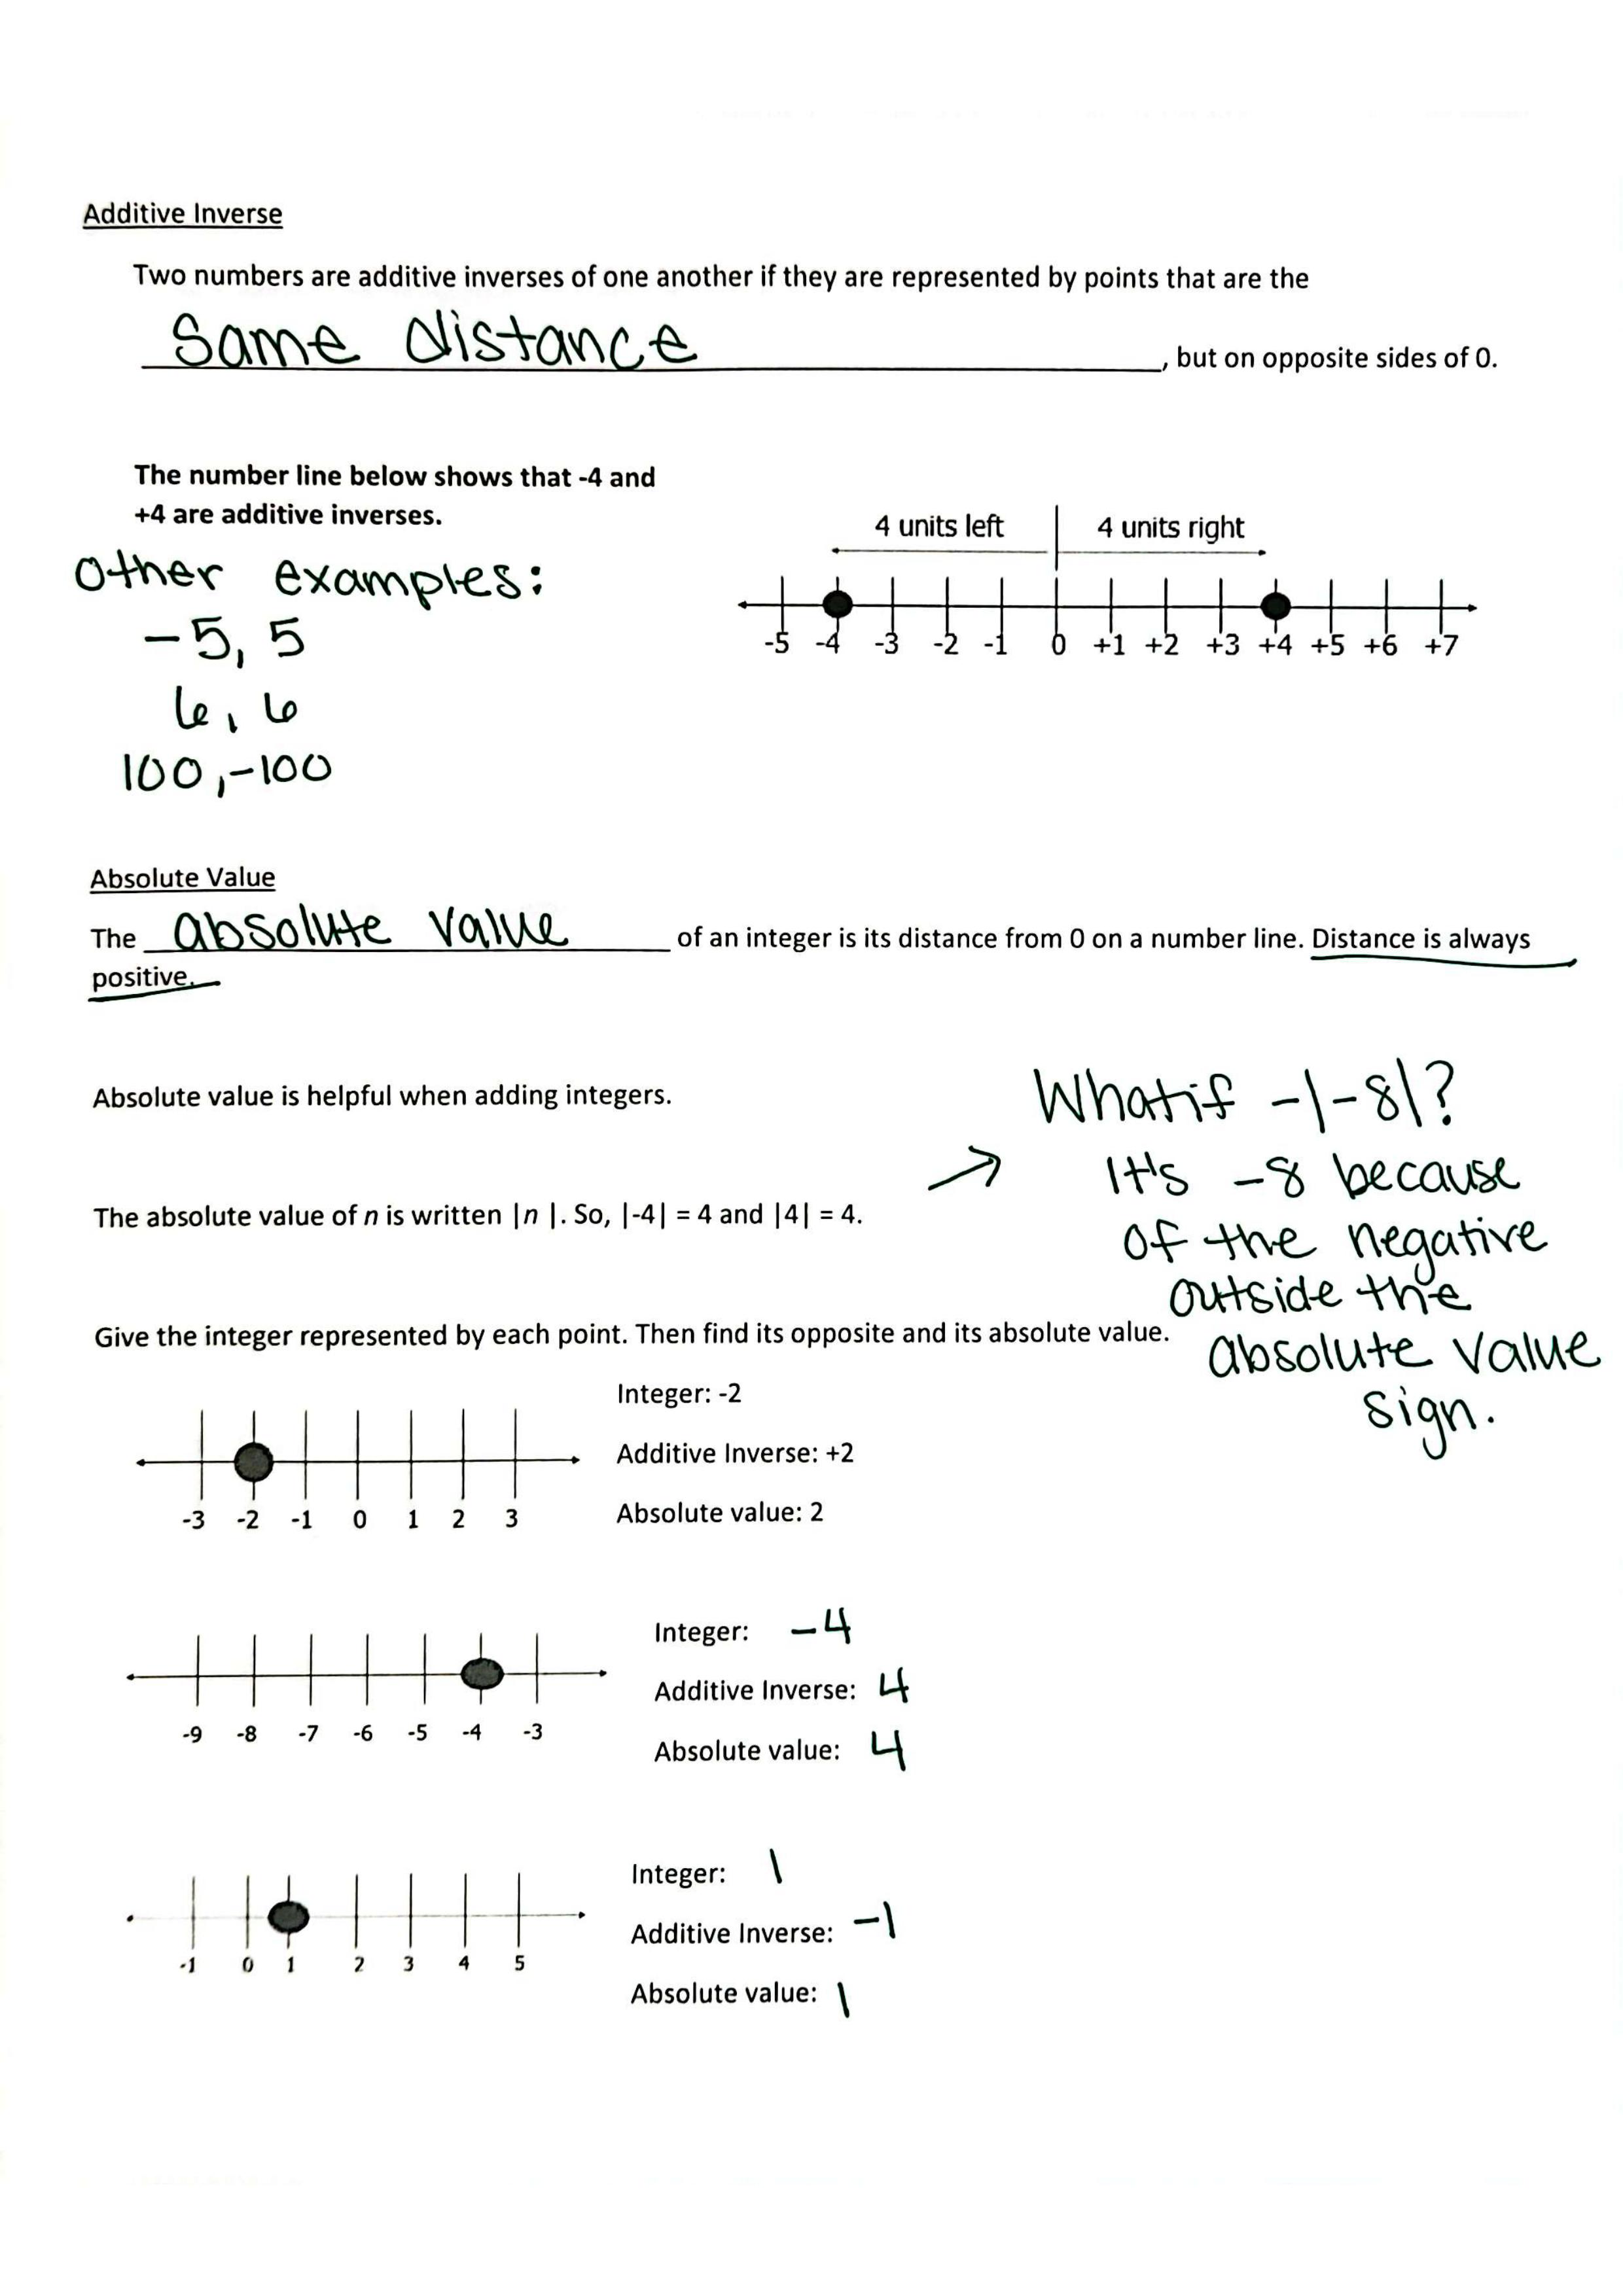 Additive Inverse
Two numbers are additive inverses of one another if they are represented by points that are the
Same distance, but on opposite sides of 0.
The number line below shows that -4 and
+4 are additive inverses.
4 units left 4 units right
-5 -4 -3 -2 -1 0 +1 +2 +3 +4 +5 +6 +7
Other examples:
-5, 5
6, 6
100, -100
Absolute Value
The absolute value of an integer is its distance from 0 on a number line. Distance is always
positive.
Absolute value is helpful when adding integers.
The absolute value of n is written |n |. So, |-4| = 4 and |4| = 4.
→ What if -|-8|?
It's -8 because
of the negative
outside the
absolute value
sign.
Give the integer represented by each point. Then find its opposite and its absolute value.
-3 -2 -1 0 1 2 3
Integer: -2
Additive Inverse: +2
Absolute value: 2
-9 -8 -7 -6 -5 -4 -3
Integer: -4
Additive Inverse: 4
Absolute value: 4
-1 0 1 2 3 4 5
Integer: 1
Additive Inverse: -1
Absolute value: 1